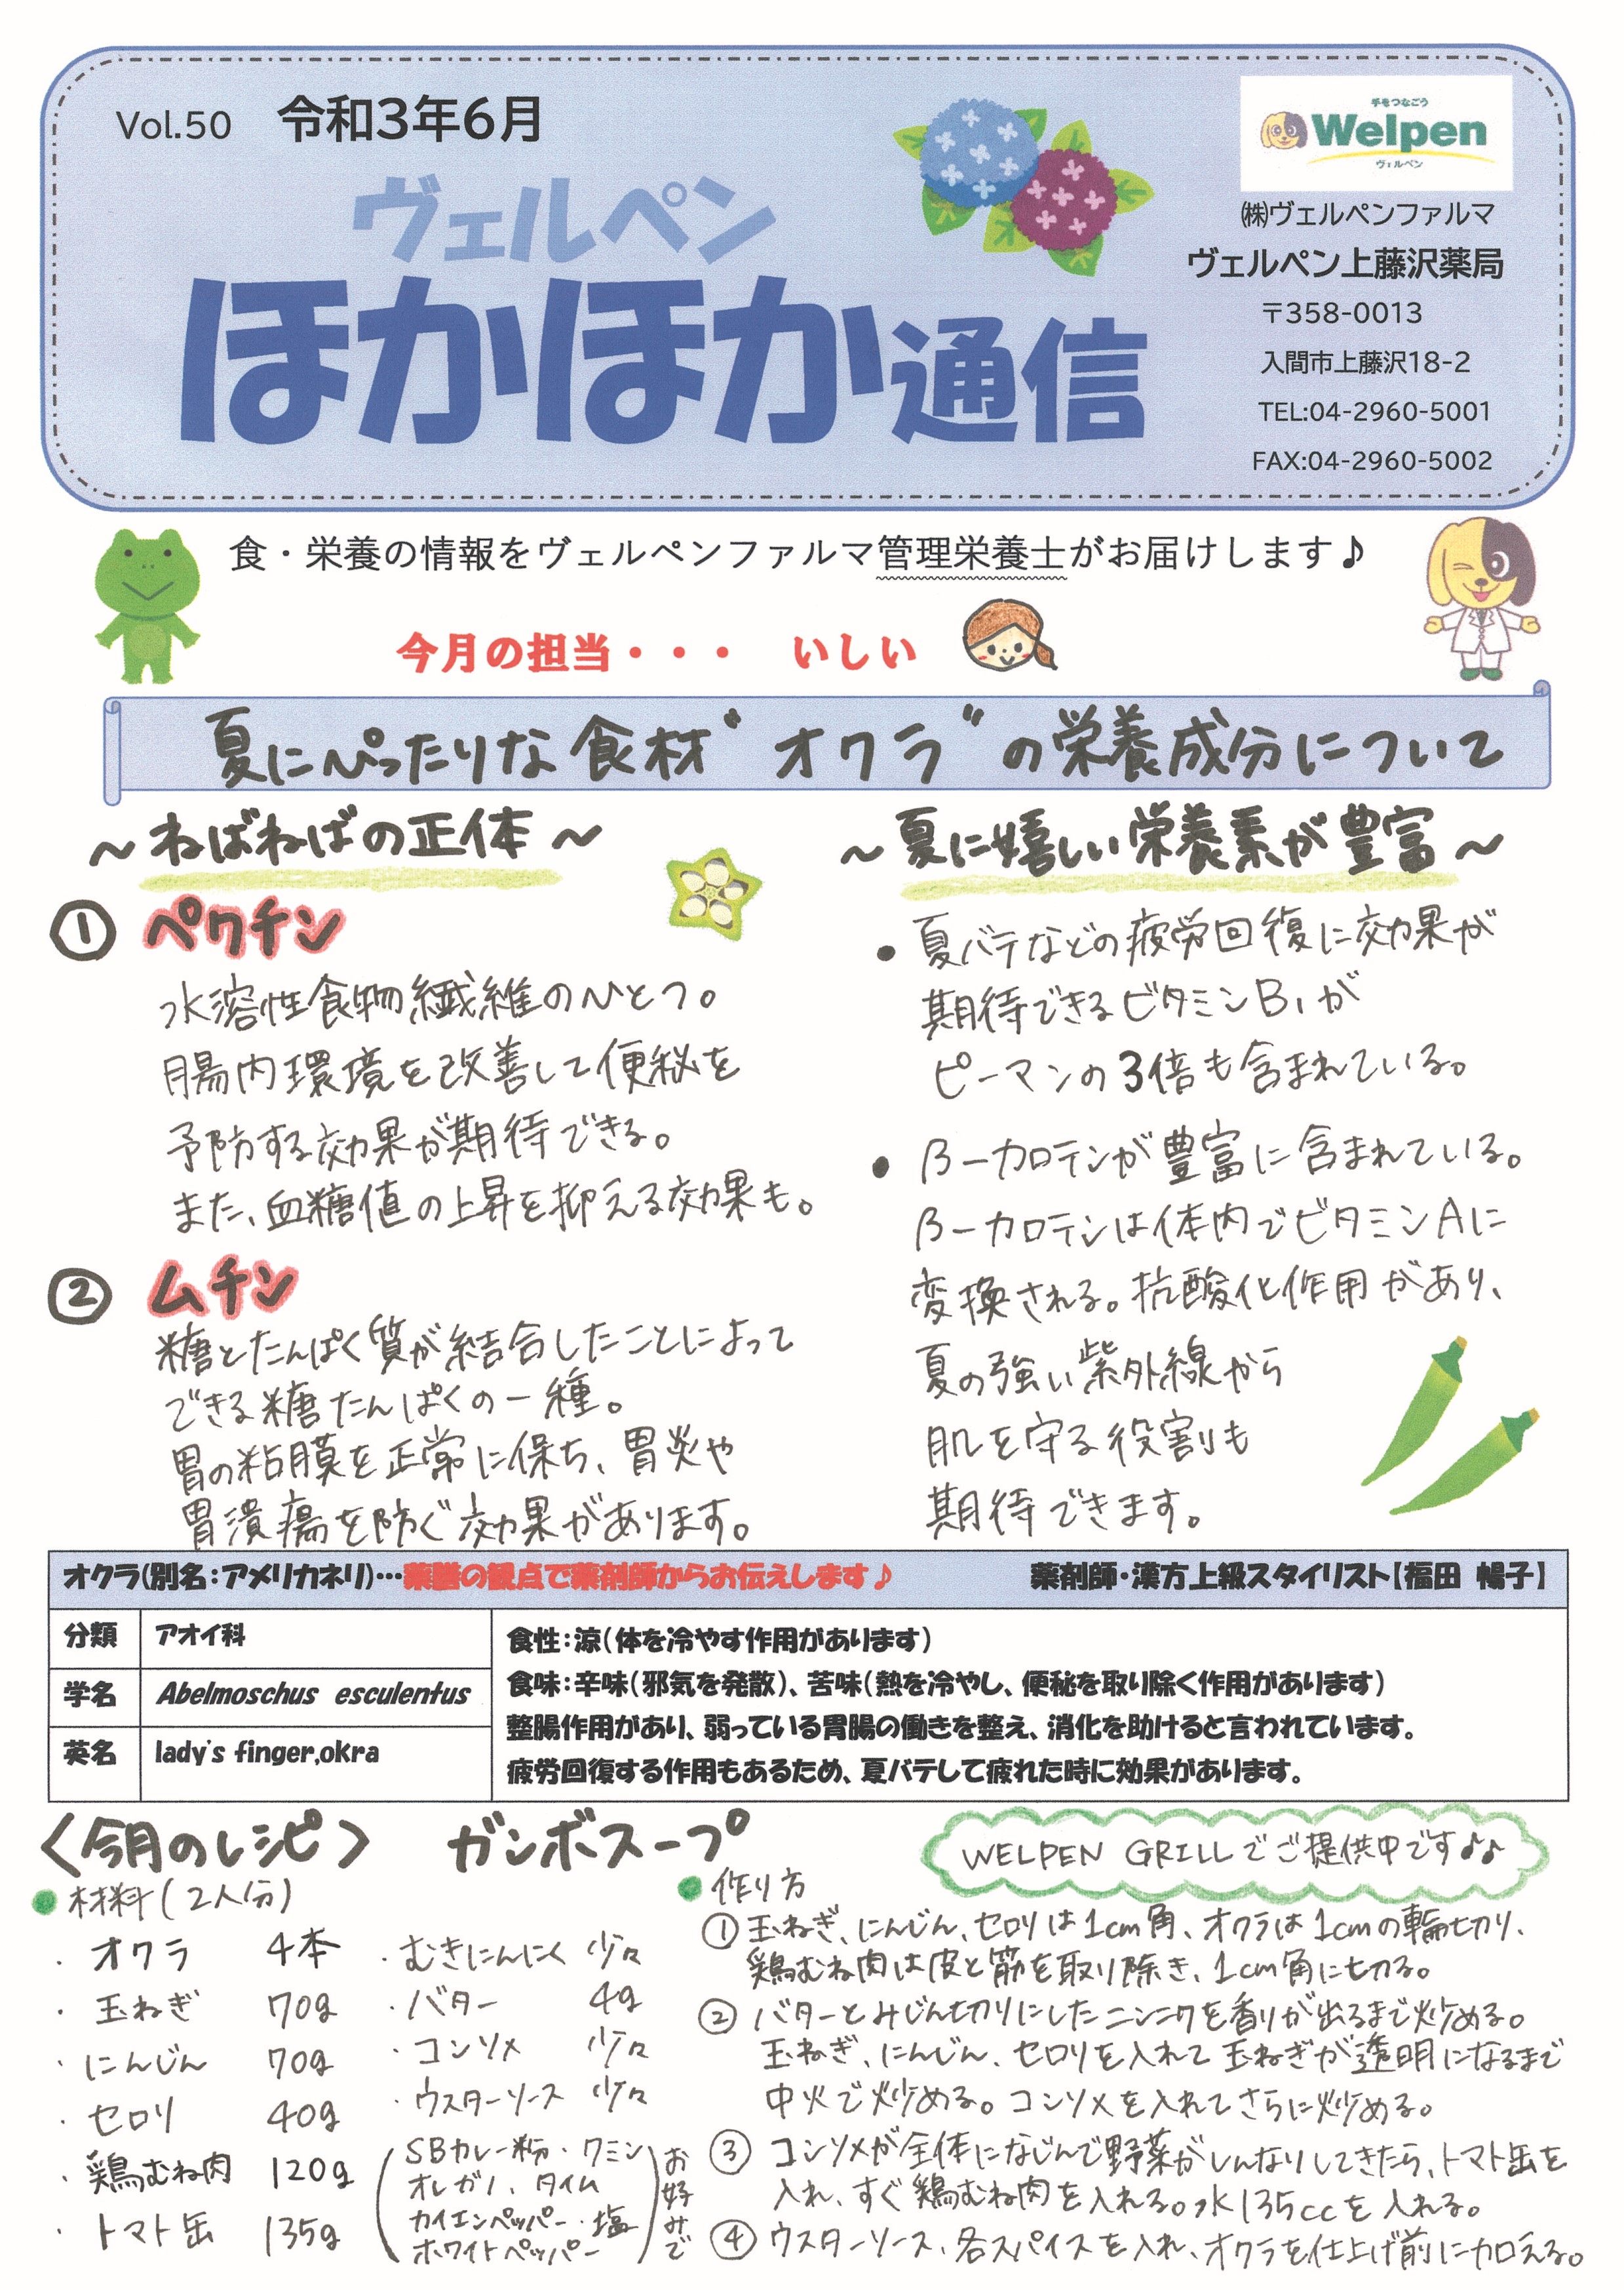 Vol.50 令和3年6月
手をつなごう
Welpen
ヴェルペン
ヴェルペン
ほかほか通信
㈱ヴェルペンファルマ
ヴェルペン上藤沢薬局
〒358-0013
入間市上藤沢18-2
TEL:04-2960-5001
FAX:04-2960-5002
食・栄養の情報をヴェルペンファルマ管理栄養士がお届けします♪
今月の担当・・・ いしい
夏にぴったりな食材"オクラ"の栄養成分について
～ねばねばの正体～
① ペクチン
水溶性食物繊維のひとつ。
腸内環境を改善して便秘を
予防する効果が期待できる。
また、血糖値の上昇を抑える効果も。
② ムチン
糖とたんぱく質が結合したことによって
できる糖たんぱくの一種。
胃の粘膜を正常に保ち、胃炎や
胃潰瘍を防ぐ効果があります。
～夏に嬉しい栄養素が豊富～
• 夏バテなどの疲労回復に効果が
期待できるビタミンB1が
ピーマンの3倍も含まれている。
• β-カロテンが豊富に含まれている。
β-カロテンは体内でビタミンAに
変換される。抗酸化作用があり、
夏の強い紫外線から
肌を守る役割も
期待できます。
オクラ(別名:アメリカネリ)…薬膳の観点で薬剤師からお伝えします♪ 薬剤師・漢方上級スタイリスト【福田 暢子】
分類 アオイ科
学名 Abelmoschus esculentus
英名 lady's finger,okra
食性:涼(体を冷やす作用があります)
食味:辛味(邪気を発散)、苦味(熱を冷やし、便秘を取り除く作用があります)
整腸作用があり、弱っている胃腸の働きを整え、消化を助けると言われています。
疲労回復する作用もあるため、夏バテして疲れた時に効果があります。
〈今月のレシピ〉 ガンボスープ
WELPEN GRILLでご提供中です♪♪
● 材料(2人分)
・オクラ 4本
・玉ねぎ 70g
・にんじん 70g
・セロリ 40g
・鶏むね肉 120g
・トマト缶 135g
・むきにんにく 少々
・バター 4g
・コンソメ 少々
・ウスターソース 少々
(SBカレー粉・クミン
オレガノ、タイム
カイエンペッパー・塩
ホワイトペッパー)お好みで
● 作り方
① 玉ねぎ、にんじん、セロリは1cm角、オクラは1cmの輪切り、
鶏むね肉は皮と筋を取り除き、1cm角に切る。
② バターとみじん切りにしたニンニクを香りが出るまで炒める。
玉ねぎ、にんじん、セロリを入れて玉ねぎが透明になるまで
中火で炒める。コンソメを入れてさらに炒める。
③ コンソメが全体になじんで野菜がしんなりしてきたら、トマト缶を
入れ、すぐ鶏むね肉を入れる。水135ccを入れる。
④ ウスターソース、各スパイスを入れ、オクラを仕上げ前に加える。